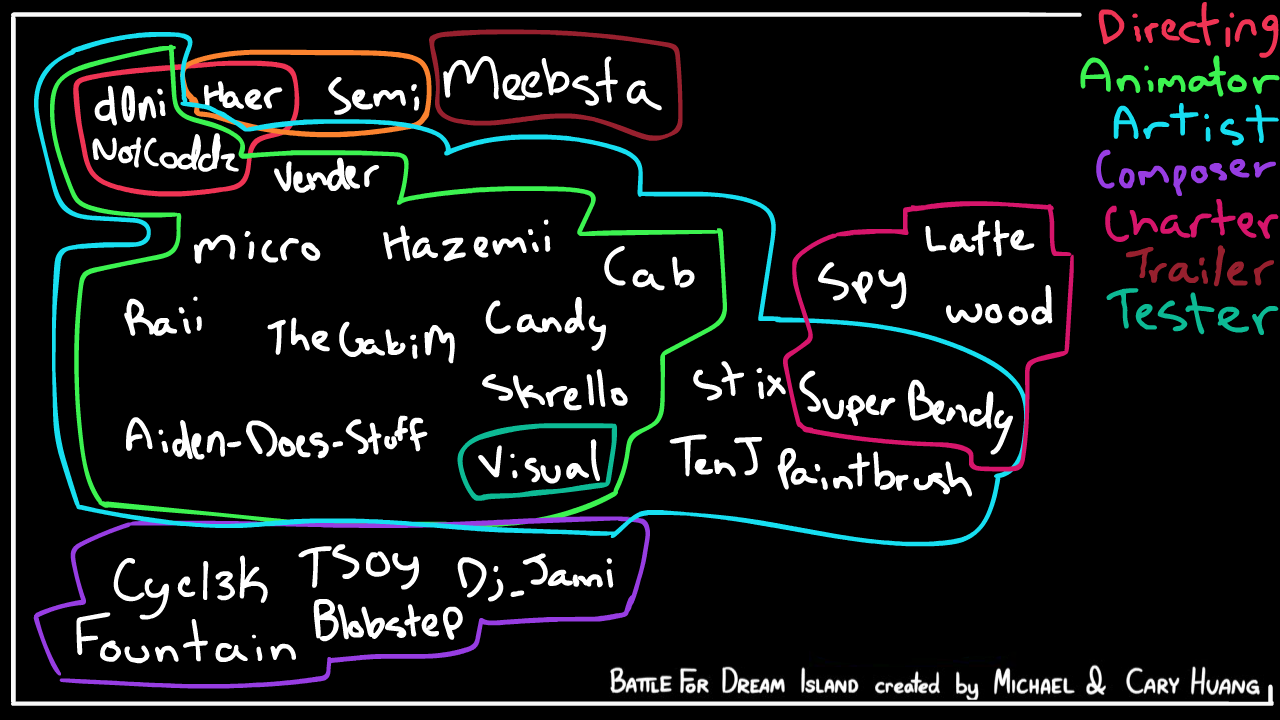 Directing
Animator
Artist
Composer
Charter
Trailer
Tester
d0ni
Haer
Semi
Meebsta
NotCoddz
Vender
Micro
Hazemii
Cab
Latte
Spy
wood
Raii
TheGabiM
Candy
Skrello
Stix
Super Bendy
Aiden-Does-Stuff
Visual
TenJ
Paintbrush
Cycl3k
TSOY
Dj_Jami
Fountain
Blobstep
BATTLE FOR DREAM ISLAND created by MICHAEL & CARY HUANG